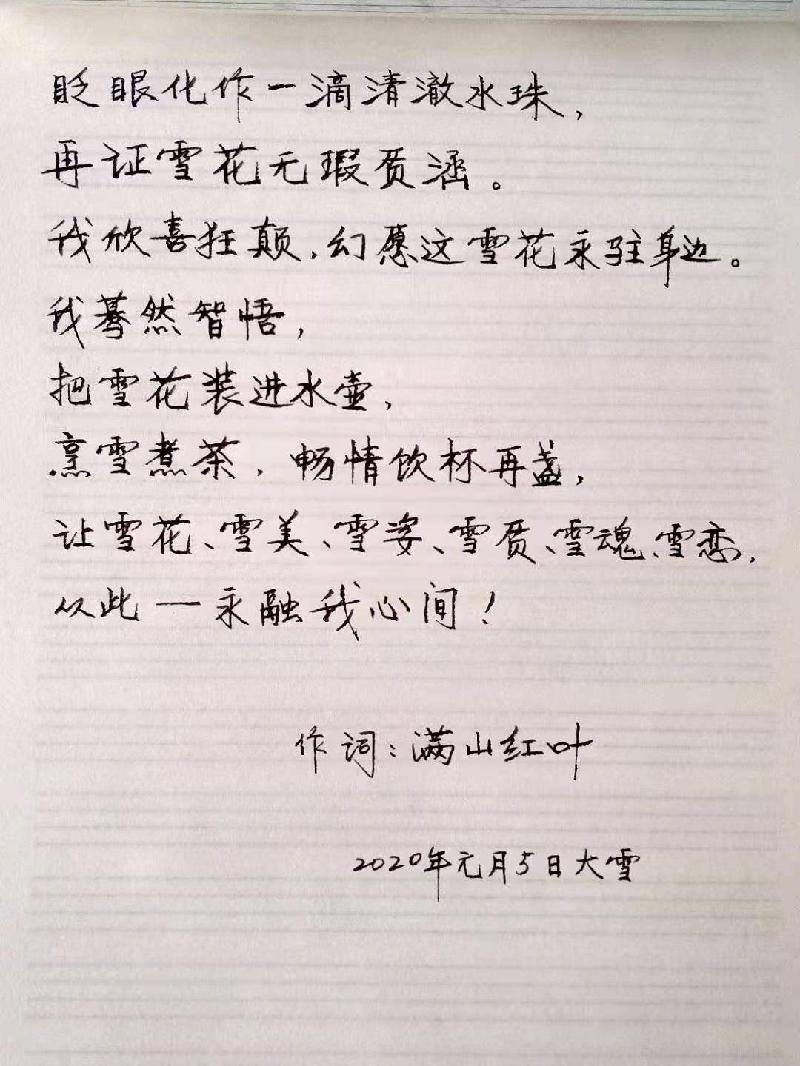 眨眼化作一滴清澈水珠，
再证雪花无瑕质涵。
我欣喜狂颠，幻愿这雪花永驻身边。
我蓦然智悟，
把雪花装进水壶，
烹雪煮茶，畅情饮杯再盏，
让雪花、雪美、雪姿、雪质、雪魂、雪恋，
从此一永融我心间！
作词：满山红叶
2020年元月5日大雪